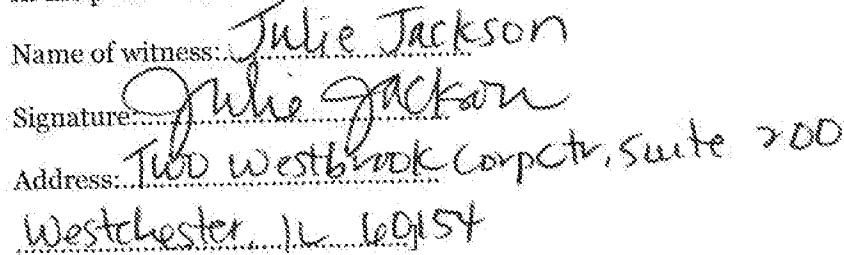 Name of witness: Julie Jackson
Signature: Julie Jackson
Address: Two Westbrook Corp Ctr, Suite 200
Westchester, IL 60154